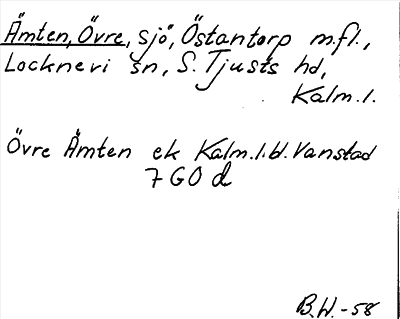 Ämten, Övre, sjö, Östantorp m.fl.,
Locknevi sn, S. Tjusts hd,
Kalm. l.
Övre Ämten ek Kalm. l. bl. Vanstad
7 GO d
B.W. -58